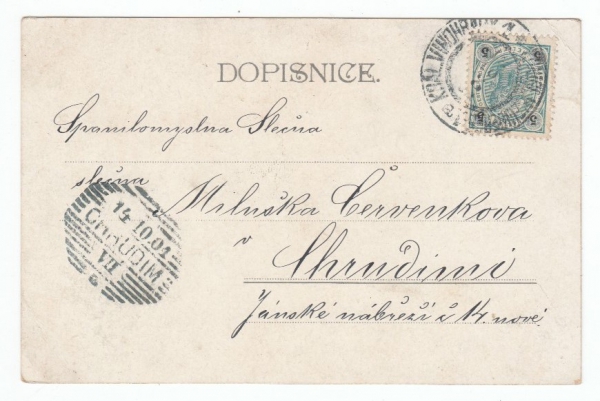 DOPISNICE.
Spanilomyslna Slečna
slečna
Miluška Červenkova
v
Chrudimi
Jánské nábřeží č 14. nové.
KRÁL. VINOHRADY
5
5
14.10.01
CHRUDIM
VII